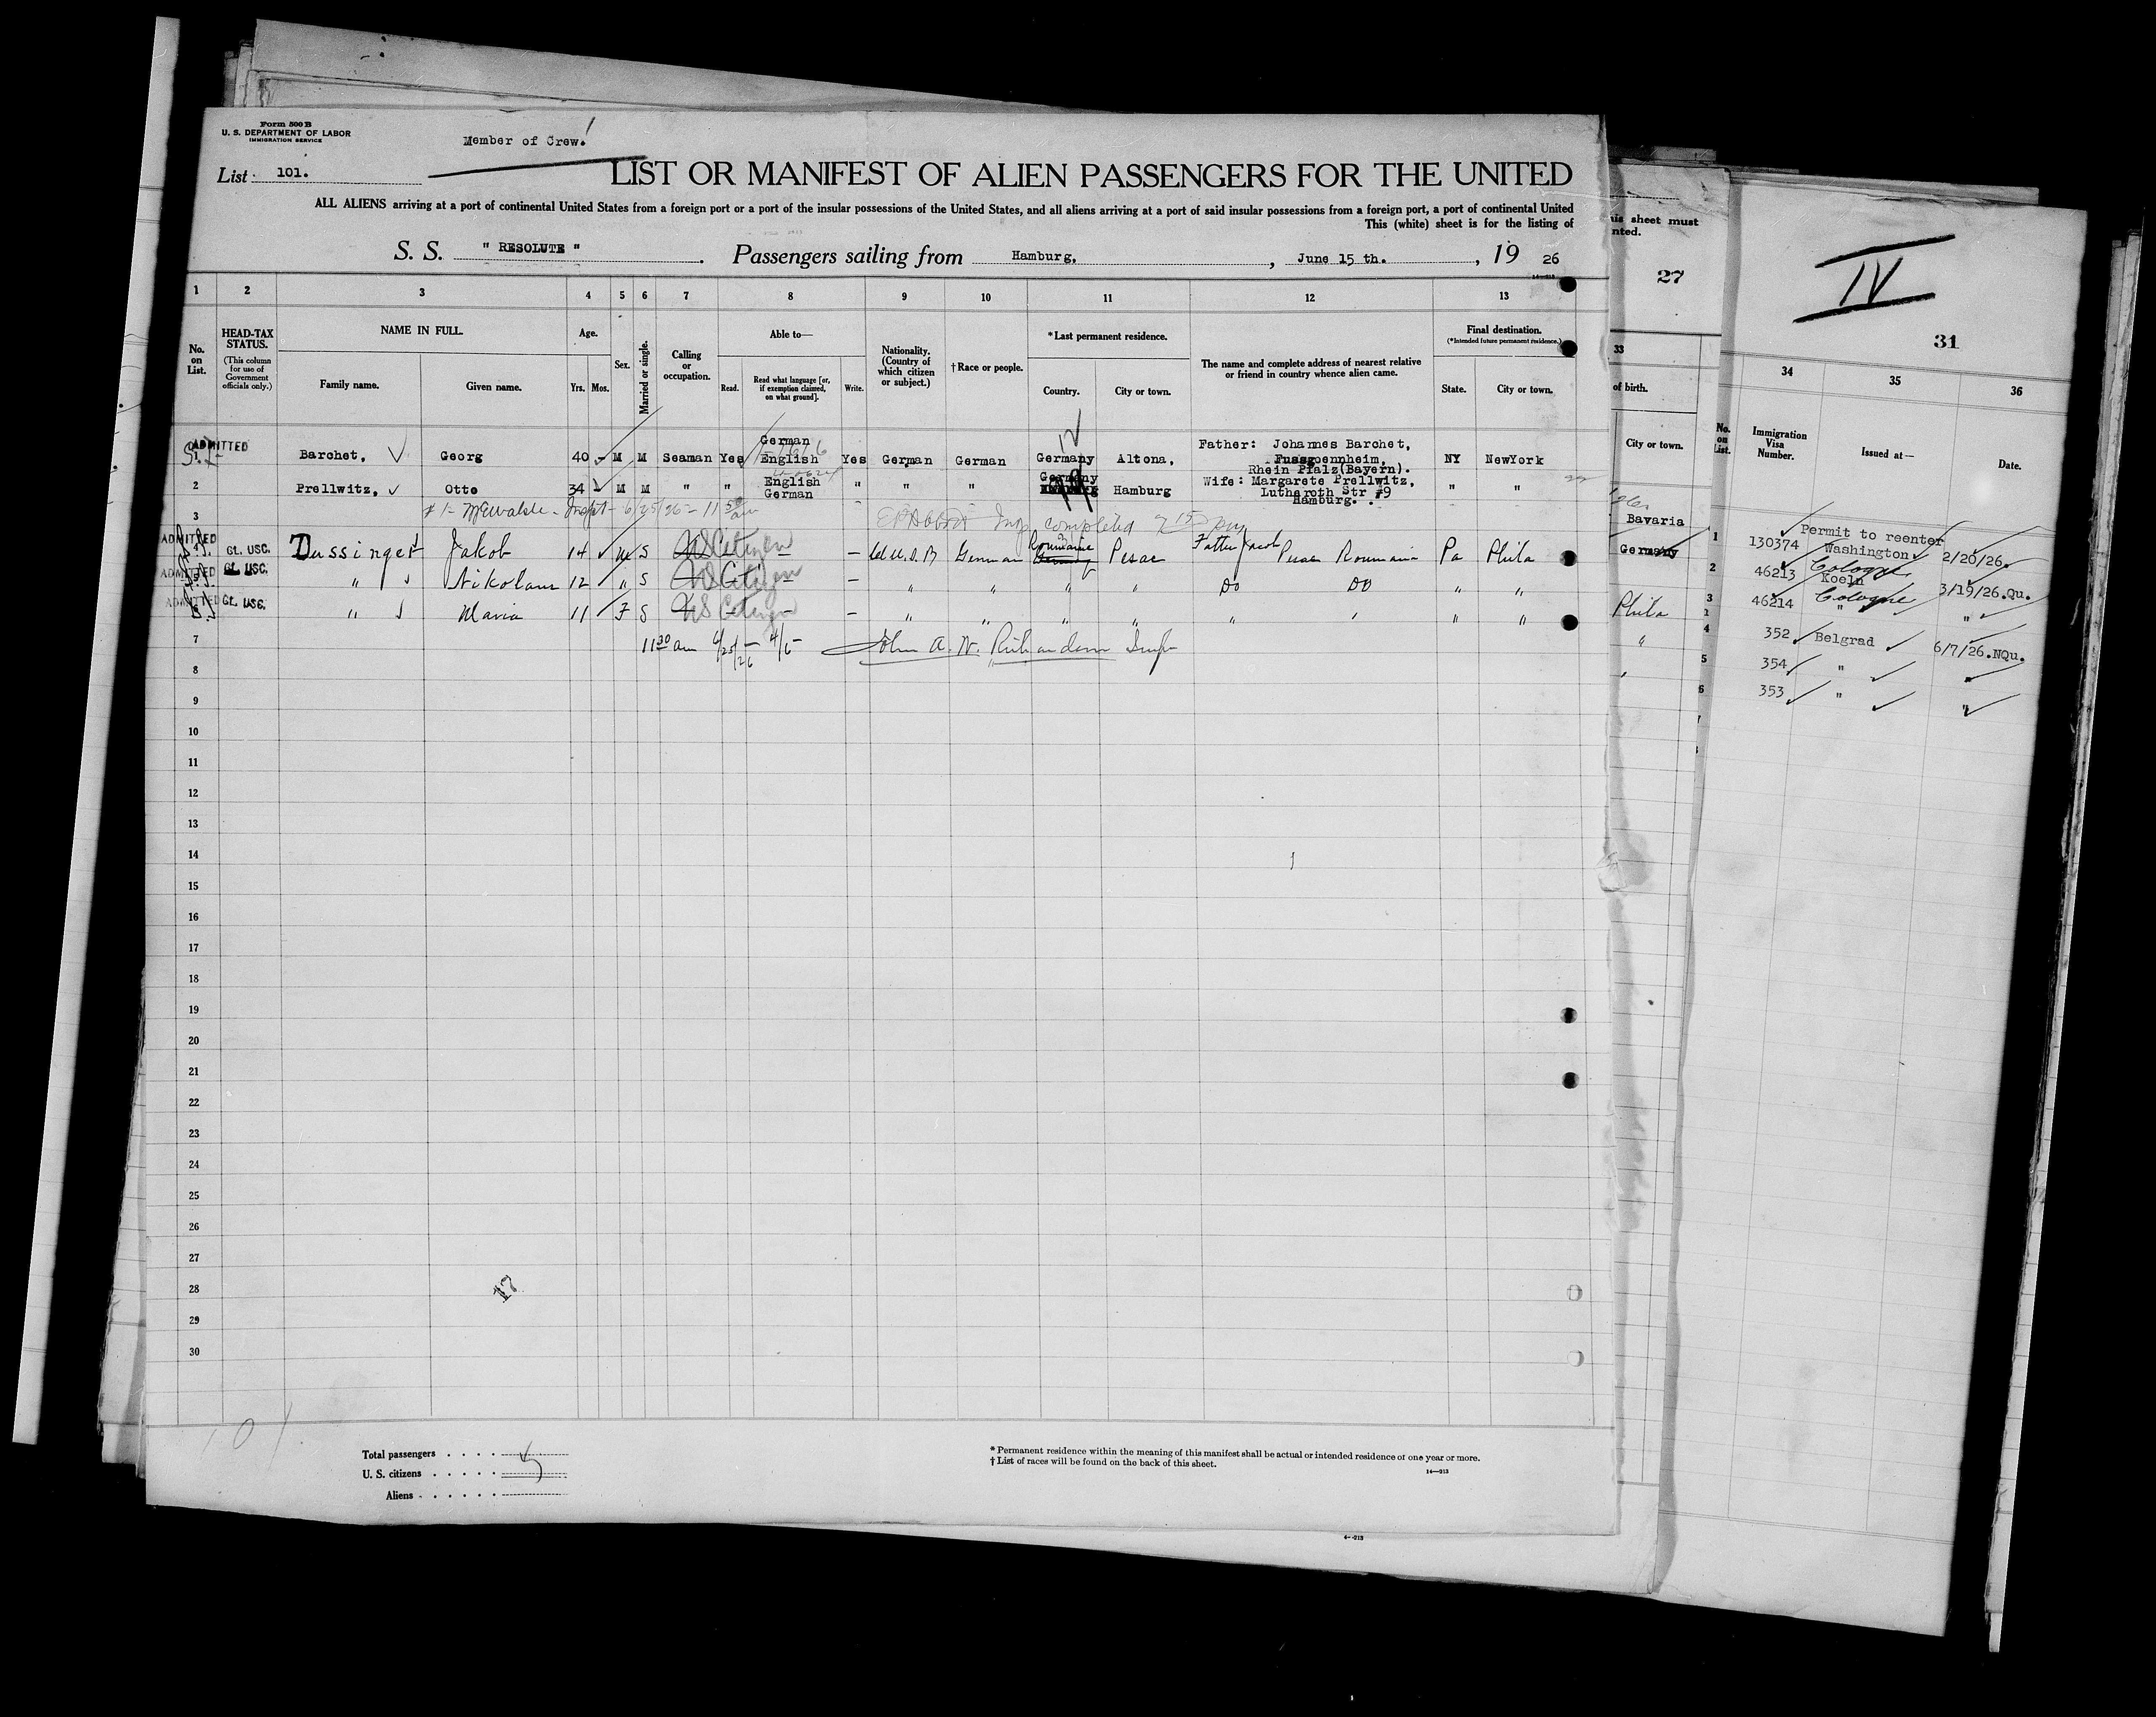 Form 500 B
U. S. DEPARTMENT OF LABOR
IMMIGRATION SERVICE
Member of Crew!
List 101.
LIST OR MANIFEST OF ALIEN PASSENGERS FOR THE UNITED
ALL ALIENS arriving at a port of continental United States from a foreign port or a port of the insular possessions of the United States, and all aliens arriving at a port of said insular possessions from a foreign port, a port of continental United
This (white) sheet is for the listing of
S. S. " RESOLUTE " Passengers sailing from Hamburg, , June 15 th. , 19 26
1 2 3 4 5 6 7 8 9 10 11 12 13
No. on List.
HEAD-TAX STATUS.
(This column for use of Government officials only.)
NAME IN FULL.
Family name.
Given name.
Age.
Yrs. Mos.
Sex.
Married or single.
Calling or occupation.
Able to—
Read.
Read what language [or, if exemption claimed, on what ground].
Write.
Nationality. (Country of which citizen or subject.)
† Race or people.
* Last permanent residence.
Country.
City or town.
The name and complete address of nearest relative or friend in country whence alien came.
Final destination.
(*Intended future permanent residence.)
State.
City or town.
ADMITTED
1 Barchet, Georg 40 - M M Seaman Yes German English Yes German German Germany Altona, Father: Johannes Barchet, Fussgoennheim, Rhein Pfalz(Bayern). NY NewYork
2 Prellwitz, Otto 34 - M M " " English German " " " Germany Hamburg Wife: Margarete Prellwitz, Lutheroth Str #9 Hamburg. " "
3
completed
ADMITTED
4 CL. USC. Dussinger Jakob 14 M S US Citizen - - German Roumaine Pesac Father Jacob Pesac Roumain Pa Phila
ADMITTED
5 CL. USC. " Nikolaus 12 " S US Citizen - - " " " " Do Do " "
ADMITTED
6 CL. USC. " Maria 11 F S US Citizen - - " " " " " " " "
7 11 30 am 6/25/26 John A. W. Richardson Insp
8
9
10
11
12
13
14
15
16
17
18
19
20
21
22
23
24
25
26
27
28
29
30
17
101
Total passengers
U. S. citizens
Aliens
5
* Permanent residence within the meaning of this manifest shall be actual or intended residence of one year or more.
† List of races will be found on the back of this sheet.
14—213
his sheet must
nted.
27
33
of birth.
City or town.
Bavaria
Germany
Phila
"
IV
31
34 35 36
No. on List.
Immigration Visa Number.
Issued at—
Date.
1 130374 Permit to reenter Washington 2/20/26.
2 46213 Cologne Koeln 3/19/26.Qu.
3 46214 Cologne " "
4 352 Belgrad 6/7/26.NQu.
5 354 " "
6 353 " "